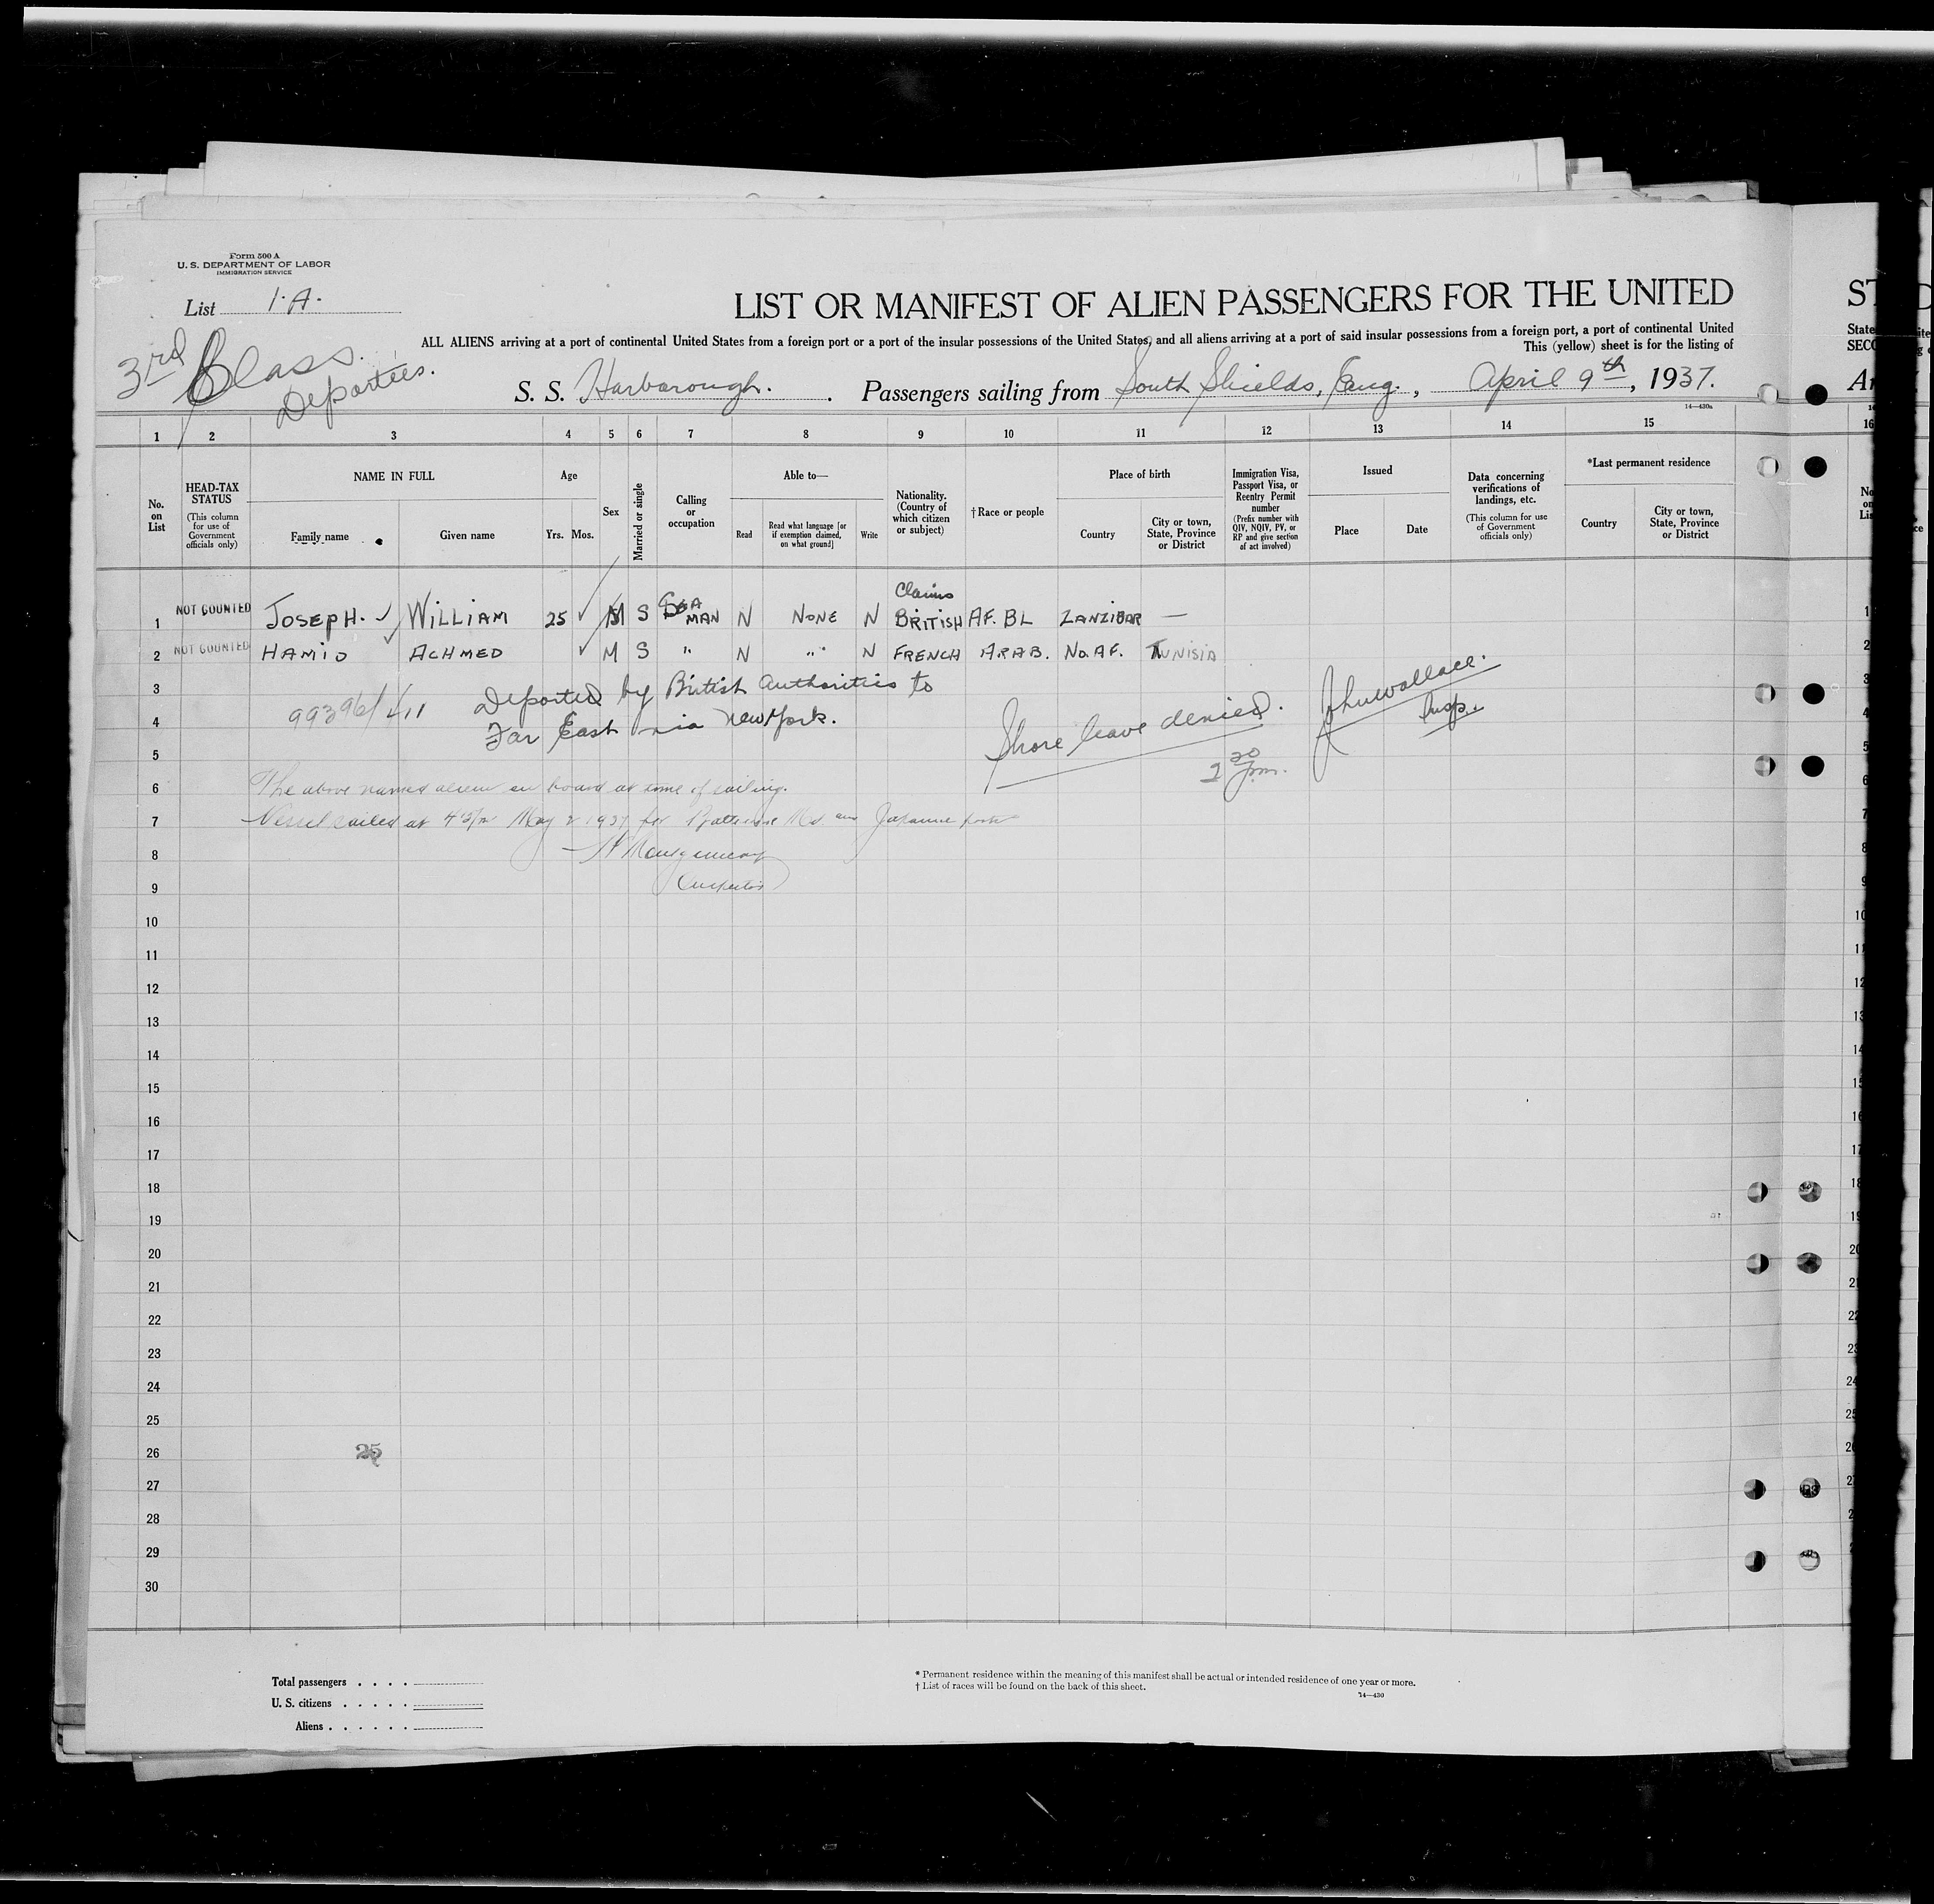 Form 500 A
U. S. DEPARTMENT OF LABOR
IMMIGRATION SERVICE
List 1.A.
LIST OR MANIFEST OF ALIEN PASSENGERS FOR THE UNITED
ST
ALL ALIENS arriving at a port of continental United States from a foreign port or a port of the insular possessions of the United States, and all aliens arriving at a port of said insular possessions from a foreign port, a port of continental United
State
This (yellow) sheet is for the listing of
SEC
3rd Class
Deportees.
S. S. Harborough. Passengers sailing from South Shields, Eng., April 9th, 1937.
14—430a
1 2 3 4 5 6 7 8 9 10 11 12 13 14 15 16
No. on List
HEAD-TAX STATUS
(This column for use of Government officials only)
NAME IN FULL
Family name
Given name
Age
Yrs. Mos.
Sex
Married or single
Calling or occupation
Able to—
Read
Read what language [or if exemption claimed, on what ground]
Write
Nationality. (Country of which citizen or subject)
†Race or people
Place of birth
Country
City or town, State, Province or District
Immigration Visa, Passport Visa, or Reentry Permit number
(Prefix number with QIV, NQIV, PV, or RP and give section of act involved)
Issued
Place
Date
Data concerning verifications of landings, etc.
(This column for use of Government officials only)
*Last permanent residence
Country
City or town, State, Province or District
Claims
1 NOT COUNTED JOSEPH. WILLIAM 25 M S SEAMAN N NONE N BRITISH AF. BL ZANZIBAR —
2 NOT COUNTED HAMID ACHMED M S " N " N FRENCH ARAB. No. AF. TUNISIA
3 Deported by British Authorities to
99396/411
4 Far East via New York.
Shore leave denied. John Wallace. Insp.
2 30 pm.
5
6 The above named aliens on board at time of sailing.
7 Vessel sailed at May 2 1937 for Baltimore Md. and Japanese ports
8 Montgomery
9 Inspector
10
11
12
13
14
15
16
17
18
19
20
21
22
23
24
25
26 25
27
28
29
30
Total passengers . . . .
U. S. citizens . . . . .
Aliens . . . . . .
* Permanent residence within the meaning of this manifest shall be actual or intended residence of one year or more.
† List of races will be found on the back of this sheet.
14—430